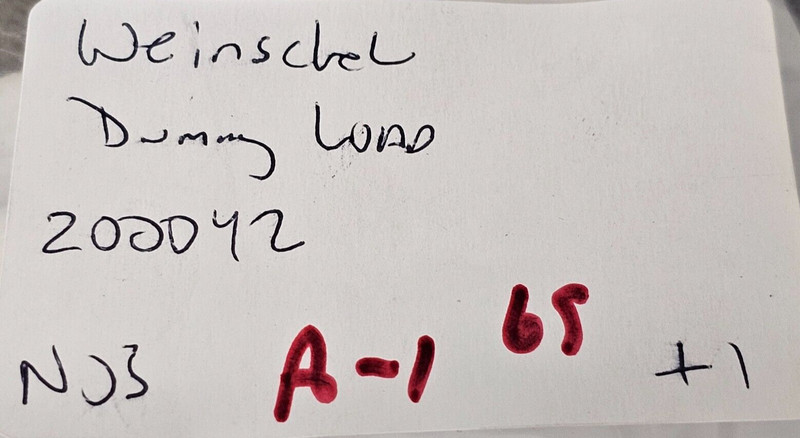 Weinschel
Dummy LOAD
200042
NJ3 A-1 65 +1